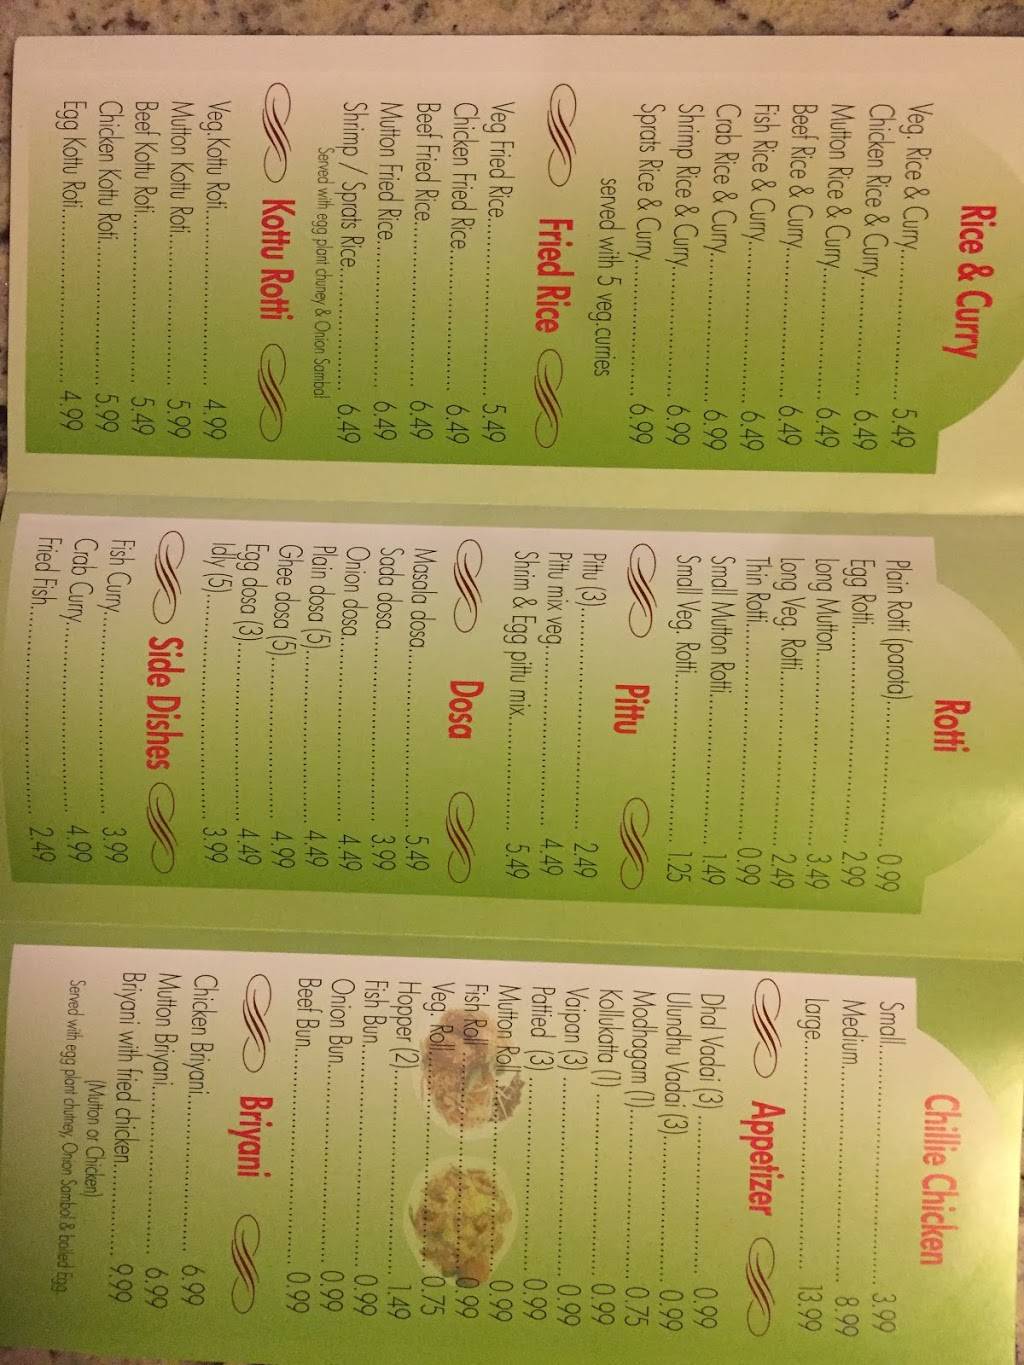 Rice & Curry
Veg. Rice & Curry 5.49
Chicken Rice & Curry 6.49
Mutton Rice & Curry 6.49
Beef Rice & Curry 6.49
Fish Rice & Curry 6.49
Crab Rice & Curry 6.99
Shrimp Rice & Curry 6.99
Sprats Rice & Curry 6.99
served with 5 veg.curries
Fried Rice
Veg Fried Rice 5.49
Chicken Fried Rice 6.49
Beef Fried Rice 6.49
Mutton Fried Rice 6.49
Shrimp / Sprats Rice 6.49
Served with egg plant chuney & Onion Sambal
Kottu Rotti
Veg.Kottu Roti 4.99
Mutton Kottu Roti 5.99
Beef Kottu Roti 5.49
Chicken Kottu Roti 5.99
Egg Kottu Roti 4.99
Rotti
Plain Rotti (parota) 0.99
Egg Rotti 2.99
Long Mutton 3.49
Long Veg. Rotti 2.49
Thin Rotti 0.99
Small Mutton Rotti 1.49
Small Veg. Rotti 1.25
Pittu
Pittu (3) 2.49
Pittu mix veg 4.49
Shrim & Egg pittu mix 5.49
Dosa
Masala dosa 5.49
Sada dosa 3.99
Onion dosa 4.49
Plain dosa (5) 4.49
Ghee dosa (5) 4.99
Egg dosa (3) 4.49
Idly (5) 3.99
Side Dishes
Fish Curry 3.99
Crab Curry 4.99
Fried Fish 2.49
Chillie Chicken
Small 3.99
Medium 8.99
Large 13.99
Appetizer
Dhal Vadai (3) 0.99
Ulundhu Vadai (3) 0.99
Modhagam (1) 0.75
Kollukatta (1) 0.99
Vaipan (3) 0.99
Pattied (3) 0.99
Mutton Roll 0.99
Fish Roll 0.99
Veg. Roll 0.75
Hopper (2) 1.49
Fish Bun 0.99
Onion Bun 0.99
Beef Bun 0.99
Briyani
Chicken Briyani 6.99
Mutton Briyani 6.99
Briyani with fried chicken 9.99
(Mutton or Chicken)
Served with egg plant chutney, Onion Sambol & boiled Egg